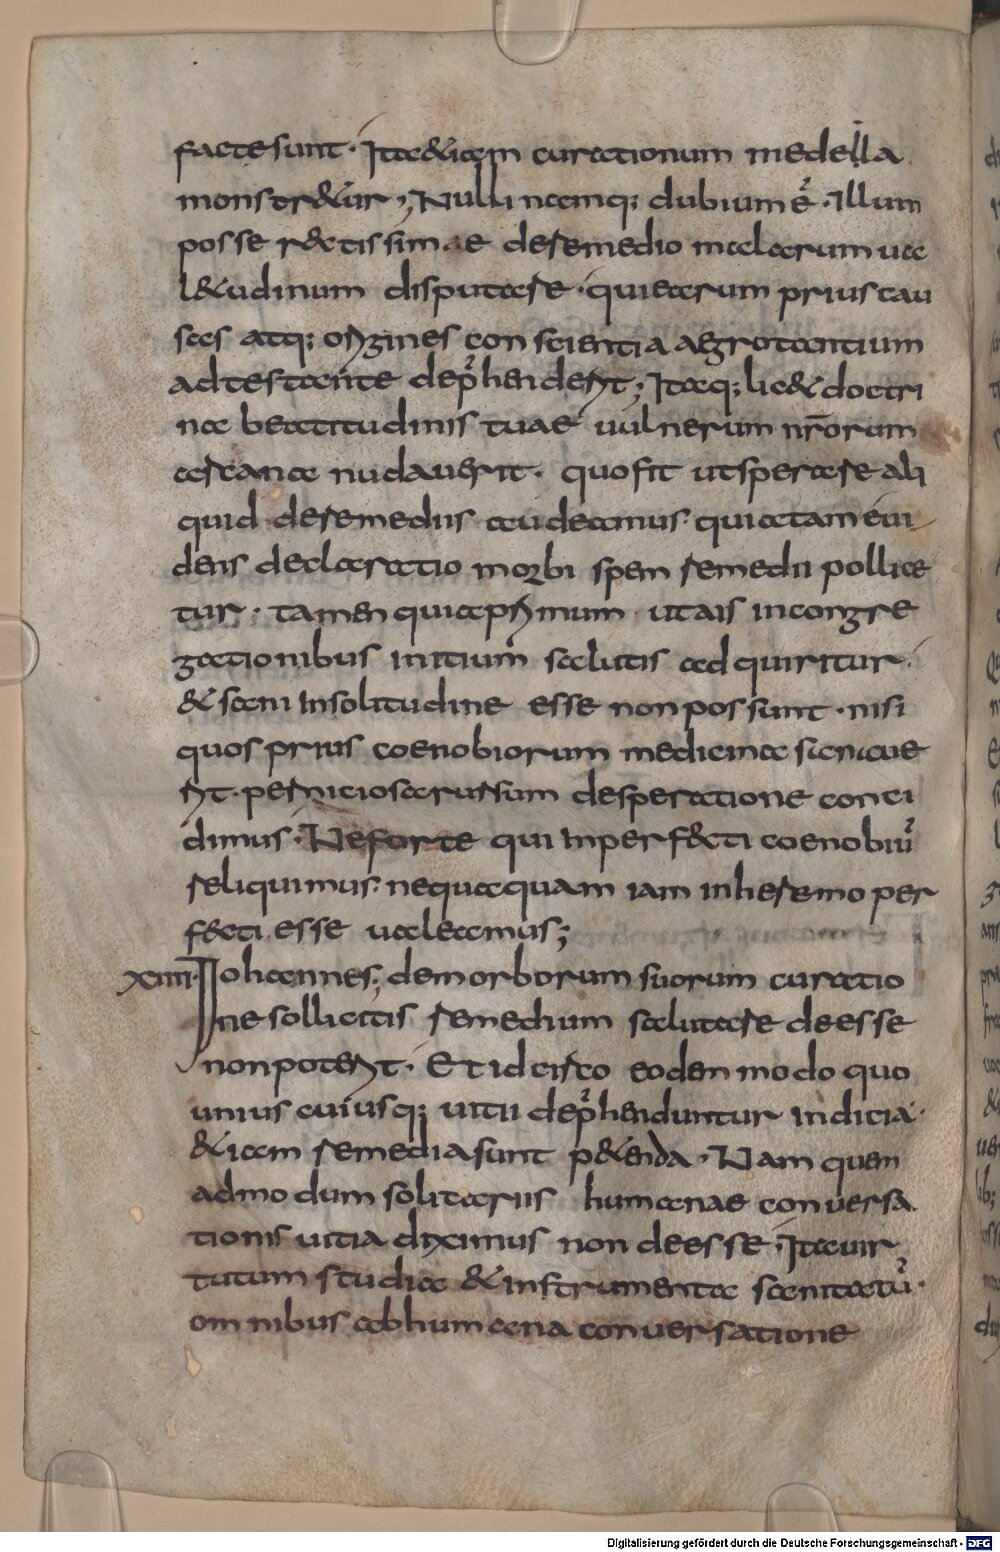 factesunt. Ita&iam curationum medella
monstr&ur; Nulli namq; dubium ē. Illum
posse r&tissimae deremedio malarum ua
l&udinum disputare. qui earum prius cau
sas atq; origines conscientia aegrotantium
adtestante depͬhenderit; Itaq; lic& doctri
na beatitudinis tuae uulnerum nr̄orum
arcana nudauerit. quo fit utsperare ali
quid deremediis audeamus. quia etam eui
dens declaratio morbi spem remedii pollice
tur. tamen quia primum ut ais incongre
gationibus initium salutis adquiritur.
& sani Insolitudine esse nonpossunt. nisi
quos prius coenobiorum medicina sanaue
rit. perniciosa rursum desperatione conci
dimus. Neforte qui Inperf&ti coenobiū
reliquimus. nequaquam iam inheremo per
f&ti esse ualeamus;
XIIII. Iohannes; demorborum suorum curatio
ne sollicitis remedium salutare deesse
nonpoterit. Et idcirco eodem modo quo
unius cuiusq; uitii depͬhenduntur indicia.
& iam remedia sunt p&enda. Nam quem
admodum solitariis humanae conuersa
tionis uitia diximus non deesse. Ita uir
tutum studia & instrumenta sanitatū.
omnibus abhumana conuersatione
Digitalisierung gefördert durch die Deutsche Forschungsgemeinschaft - DFG